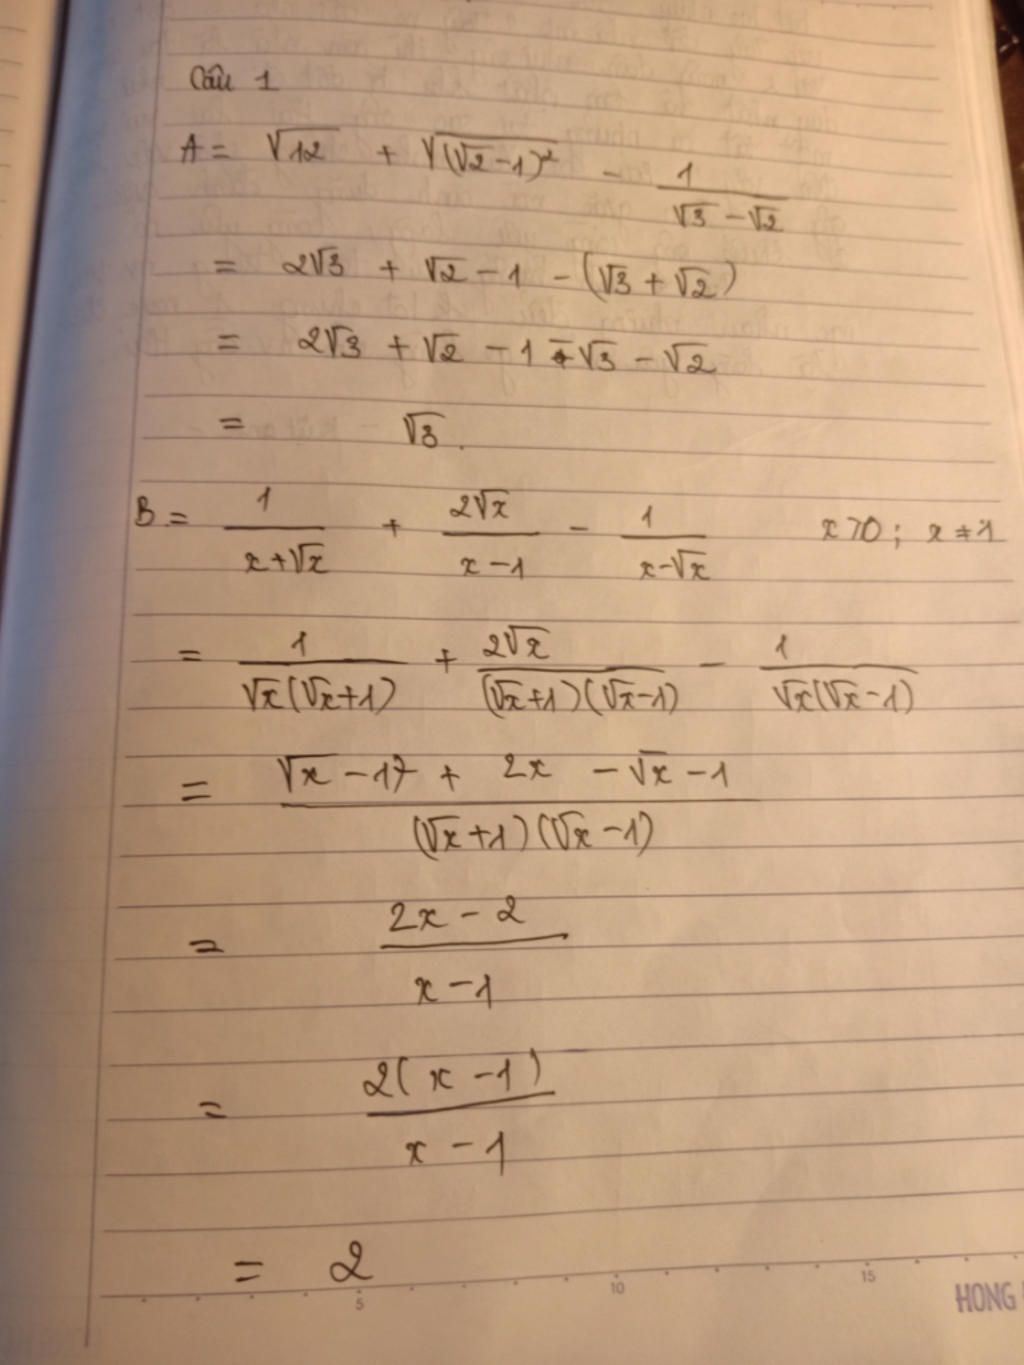 Câu 1
A = √12 + √(√2-1)² - 1/(√3-√2)
= 2√3 + √2 - 1 - (√3 + √2)
= 2√3 + √2 - 1 - √3 - √2
= √3.
B = 1/(x+√x) + 2√x/(x-1) - 1/(x-√x) x>0; x≠1
= 1/(√x(√x+1)) + 2√x/((√x+1)(√x-1)) - 1/(√x(√x-1))
= (√x - 1 + 2x - √x - 1)/((√x+1)(√x-1))
= (2x - 2)/(x - 1)
= 2(x - 1)/(x - 1)
= 2
5 10 15
HONG